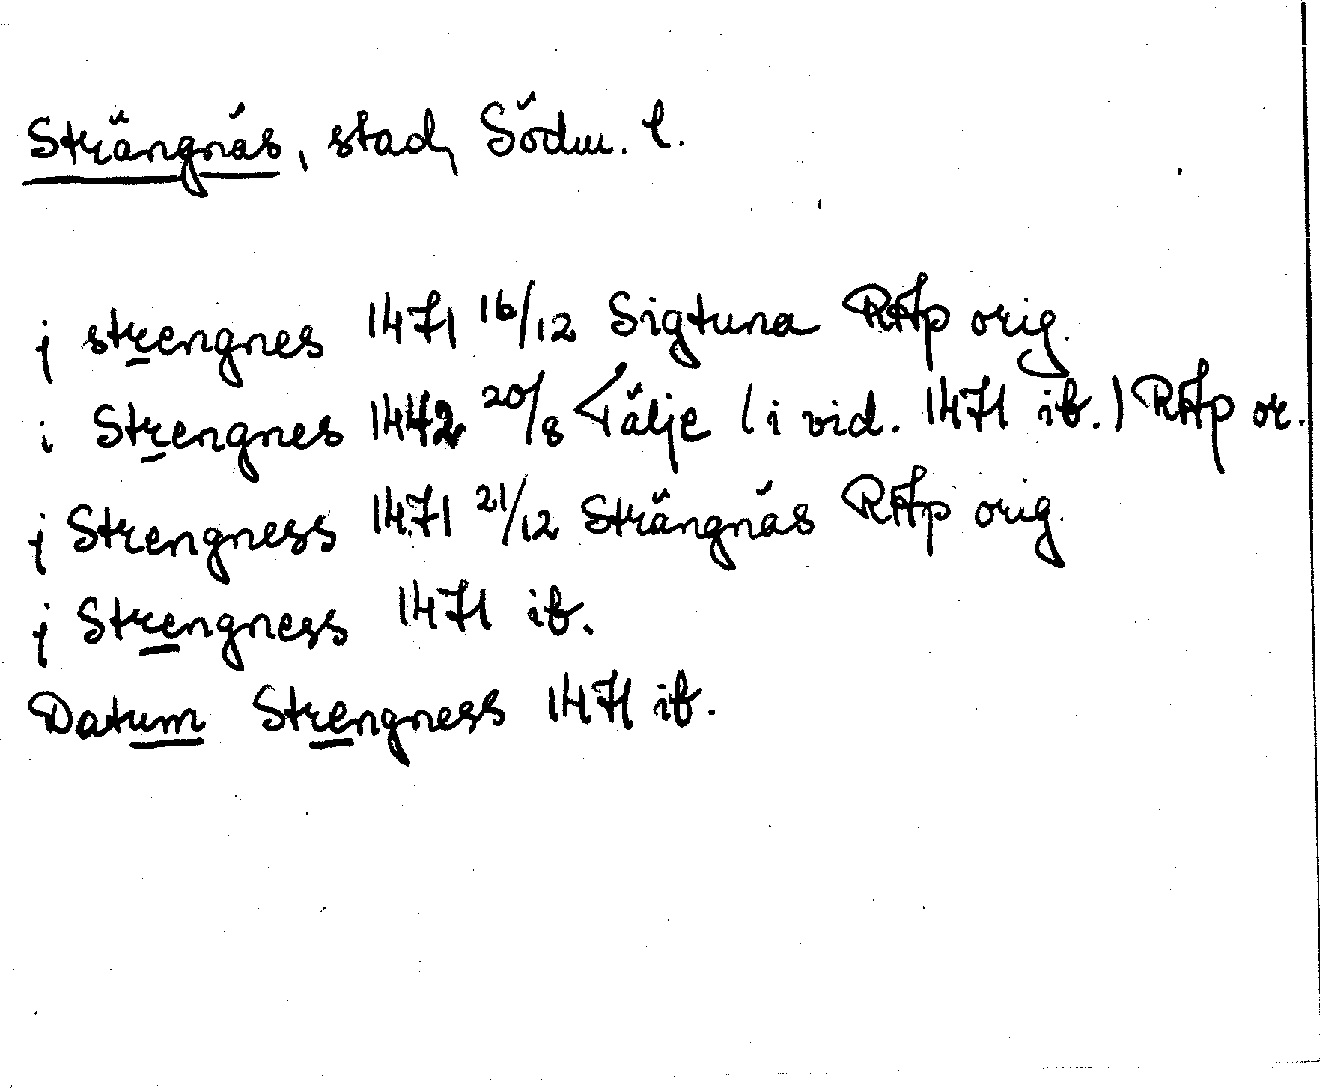 Strängnäs, stad, Södm. l.
j strengnes 1471 16/12 Sigtuna RAp orig.
i Strengnes 1442 20/8 Tälje (i vid. 1471 ib.) RAp or.
j Strengness 1471 21/12 Strängnäs RAp orig.
j Strengness 1471 ib.
Datum Strengness 1471 ib.